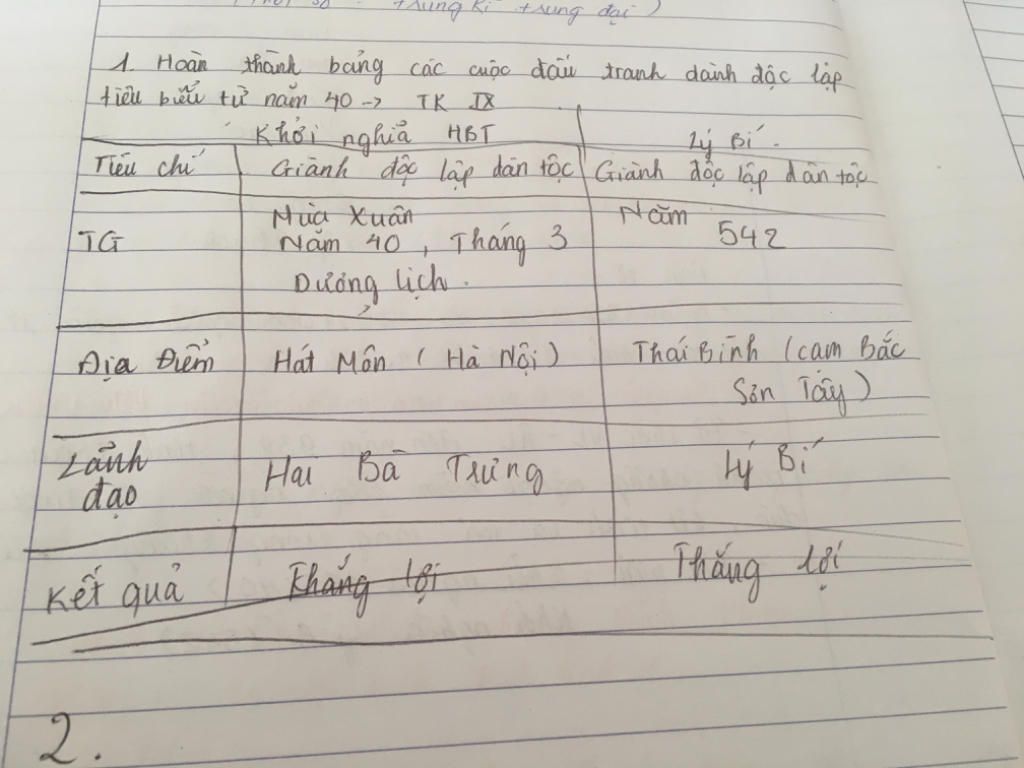 trung kì trung đại)
1. Hoàn thành bảng các cuộc đấu tranh dành độc lập
tiêu biểu từ năm 40 -> TK IX
Khởi nghĩa HBT Lý Bí.
Tiêu chí Giành độc lập dân tộc Giành độc lập dân tộc
TG Mùa Xuân Năm 542
Năm 40, Tháng 3
Dương lịch.
Địa Điểm Hát Môn (Hà Nội) Thái Bình (cam Bắc
Sơn Tây)
Lảnh Hai Bà Trưng Lý Bí
đạo
Kết quả Thắng lợi Thắng lợi
2.